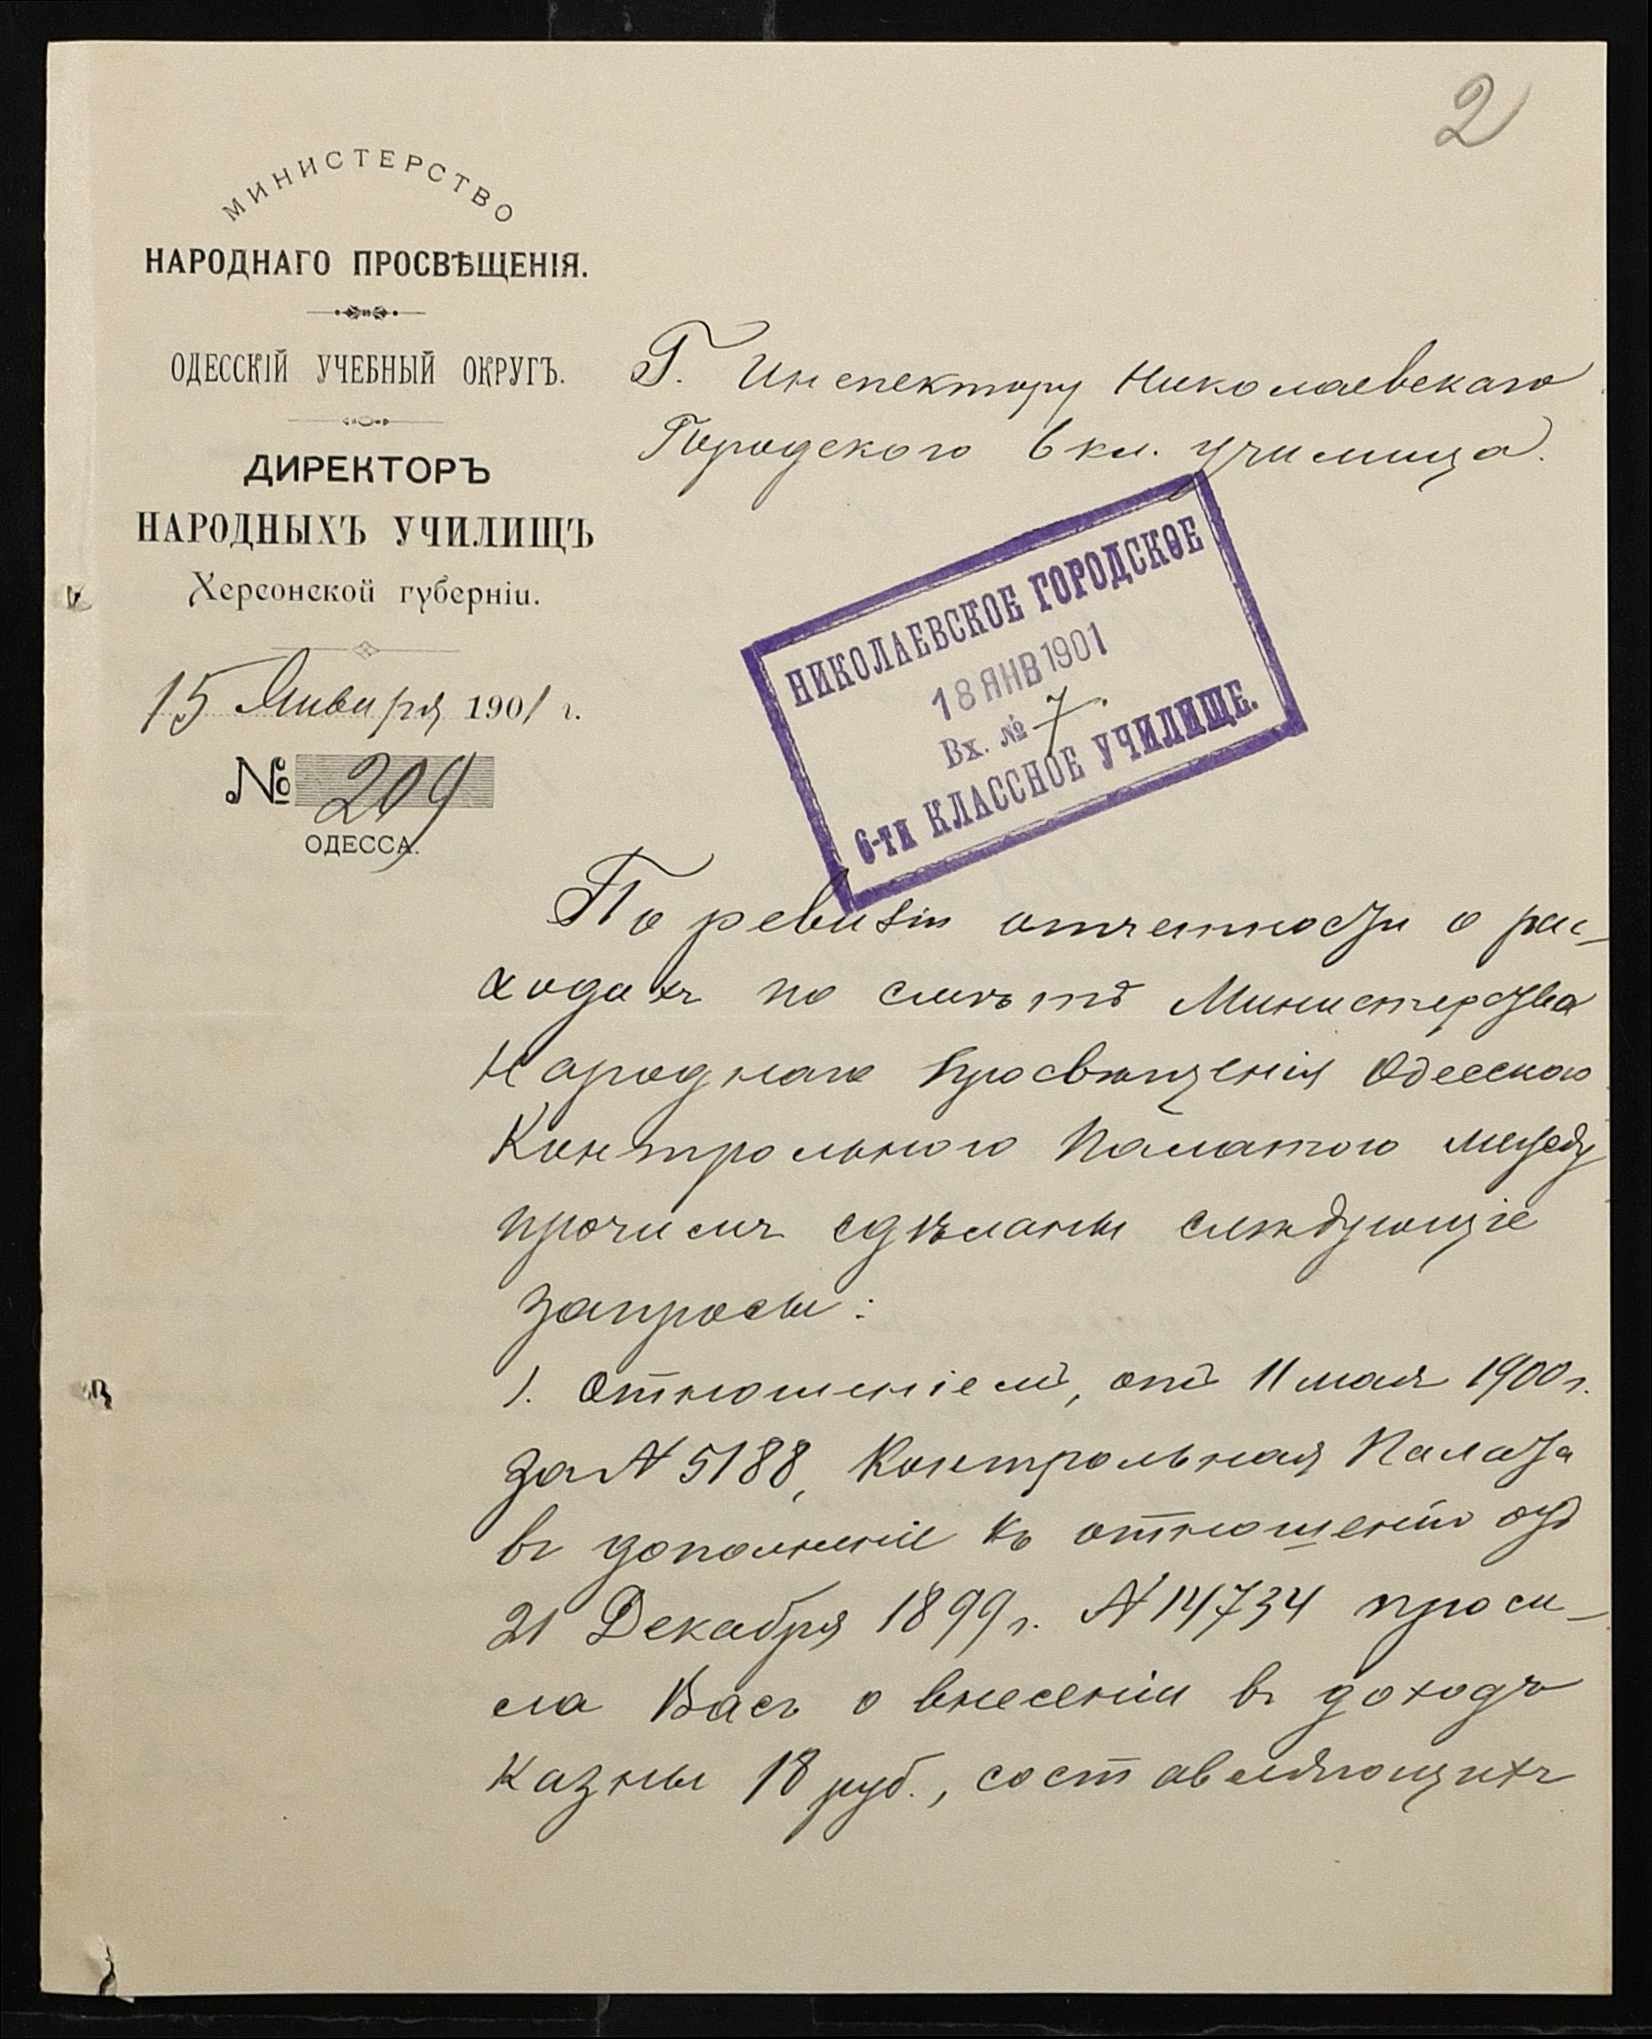 2
МИНИСТЕРСТВО
НАРОДНАГО ПРОСВѢЩЕНІЯ.
ОДЕССКІЙ УЧЕБНЫЙ ОКРУГЪ.
ДИРЕКТОРЪ
НАРОДНЫХЪ УЧИЛИЩЪ
Херсонской губерніи.
15 Января 1901 г.
№ 209
ОДЕССА.
Г. Инспектору Николаевскаго
Городского 6 кл. училища.
НИКОЛАЕВСКОЕ ГОРОДСКОЕ
18 ЯНВ 1901
Вх. № 7.
6-ти КЛАССНОЕ УЧИЛИЩЕ.
По ревизіи отчетности о рас-
ходахъ по смѣтѣ Министерства
Народнаго Просвѣщенія Одесскою
Контрольною Палатою между
прочимъ сдѣланы слѣдующіе
запросы:
1. Отношеніемъ, отъ 11 мая 1900 г.
за № 5188, Контрольная Палата
въ дополненіе къ отношенію отъ
21 Декабря 1899 г. № 14734 проси-
ла Васъ о внесеніи въ доходъ
казны 18 руб., составляющихъ